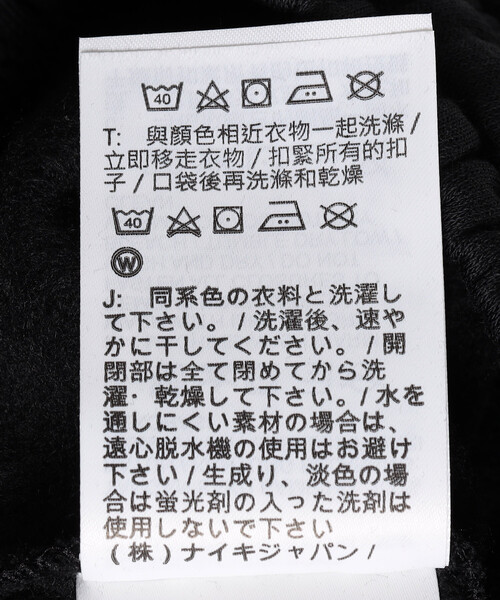 40
T: 與顏色相近衣物一起洗滌 /
立即移走衣物 / 扣緊所有的扣
子 / 口袋後再洗滌和乾燥
40
W
J: 同系色の衣料と洗濯し
て下さい。 / 洗濯後、速や
かに干してください。 / 開
閉部は全て閉めてから洗
濯・乾燥して下さい。 / 水を
通しにくい素材の場合は、
遠心脱水機の使用はお避け
下さい / 生成り、淡色の場
合は蛍光剤の入った洗剤は
使用しないで下さい
(株)ナイキジャパン /